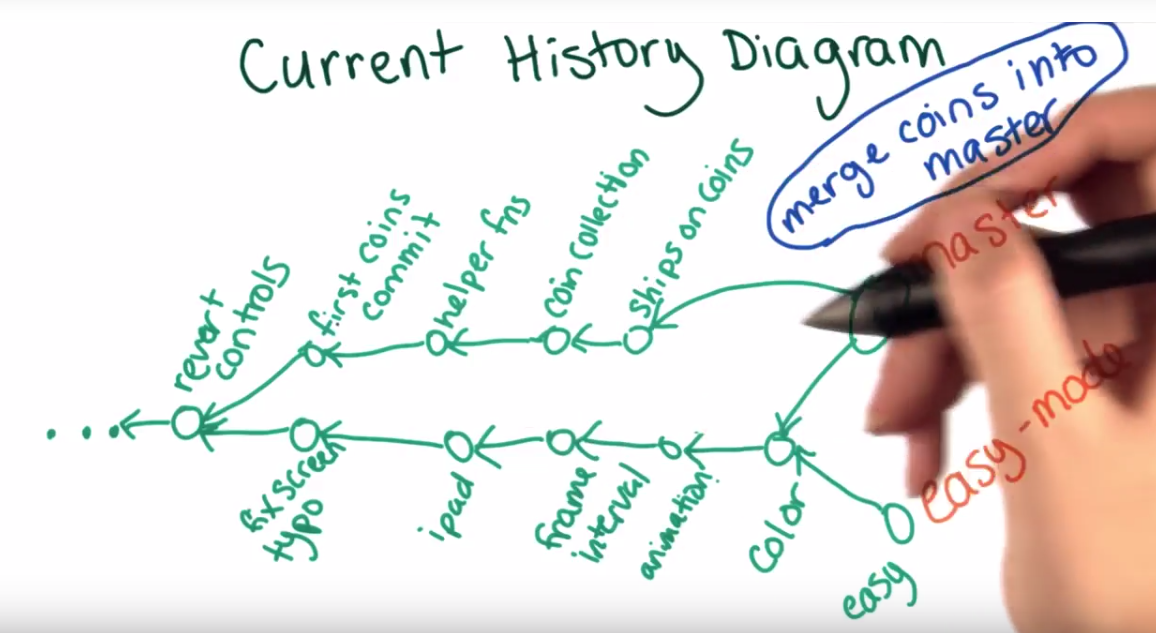 Current History Diagram
merge coins into
master
master
revert
controls
first coins
commit
helper fns
coin collection
ships on coins
easy-mode
fix screen
typo
ipad
frame
interval
animation
color
easy